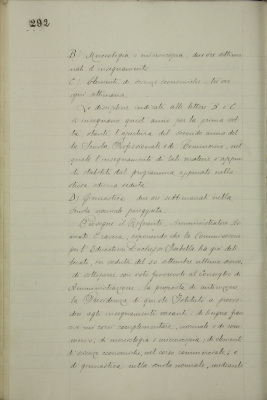 292
B) Mineralogia e microscopia, due ore settima-
nali d'insegnamento.
C) Elementi di scienze economiche, tre ore
ogni settimana.
Le discipline indicate alle lettere B e C
si insegnano quest'anno per la prima vol-
ta, stante l'apertura del secondo anno del-
la Scuola Professionale di Commercio, nel
quale l'insegnamento di tali materie è appun-
to stabilito dal programma approvato nella
stessa seduta.
D) Ginnastica, due ore settimanali nella
Scuola normale pareggiata.
Amministrativo
esponendo che la Commissione
per l'Educatorio ha già deli-
berato, in seduta del 20 settembre ultimo scorso,
di sottoporre con voto favorevole al Consiglio di
Amministrazione, la proposta di autorizzare
la Presidenza di questo Istituto a provve-
dere agli insegnamenti vacanti, di lingua fran-
cese nei corsi complementare, normale e di com-
mercio; di mineralogia e microscopia, di elementi
di scienze economiche, nel corso commerciale; e
di ginnastica nella scuola normale, mediante